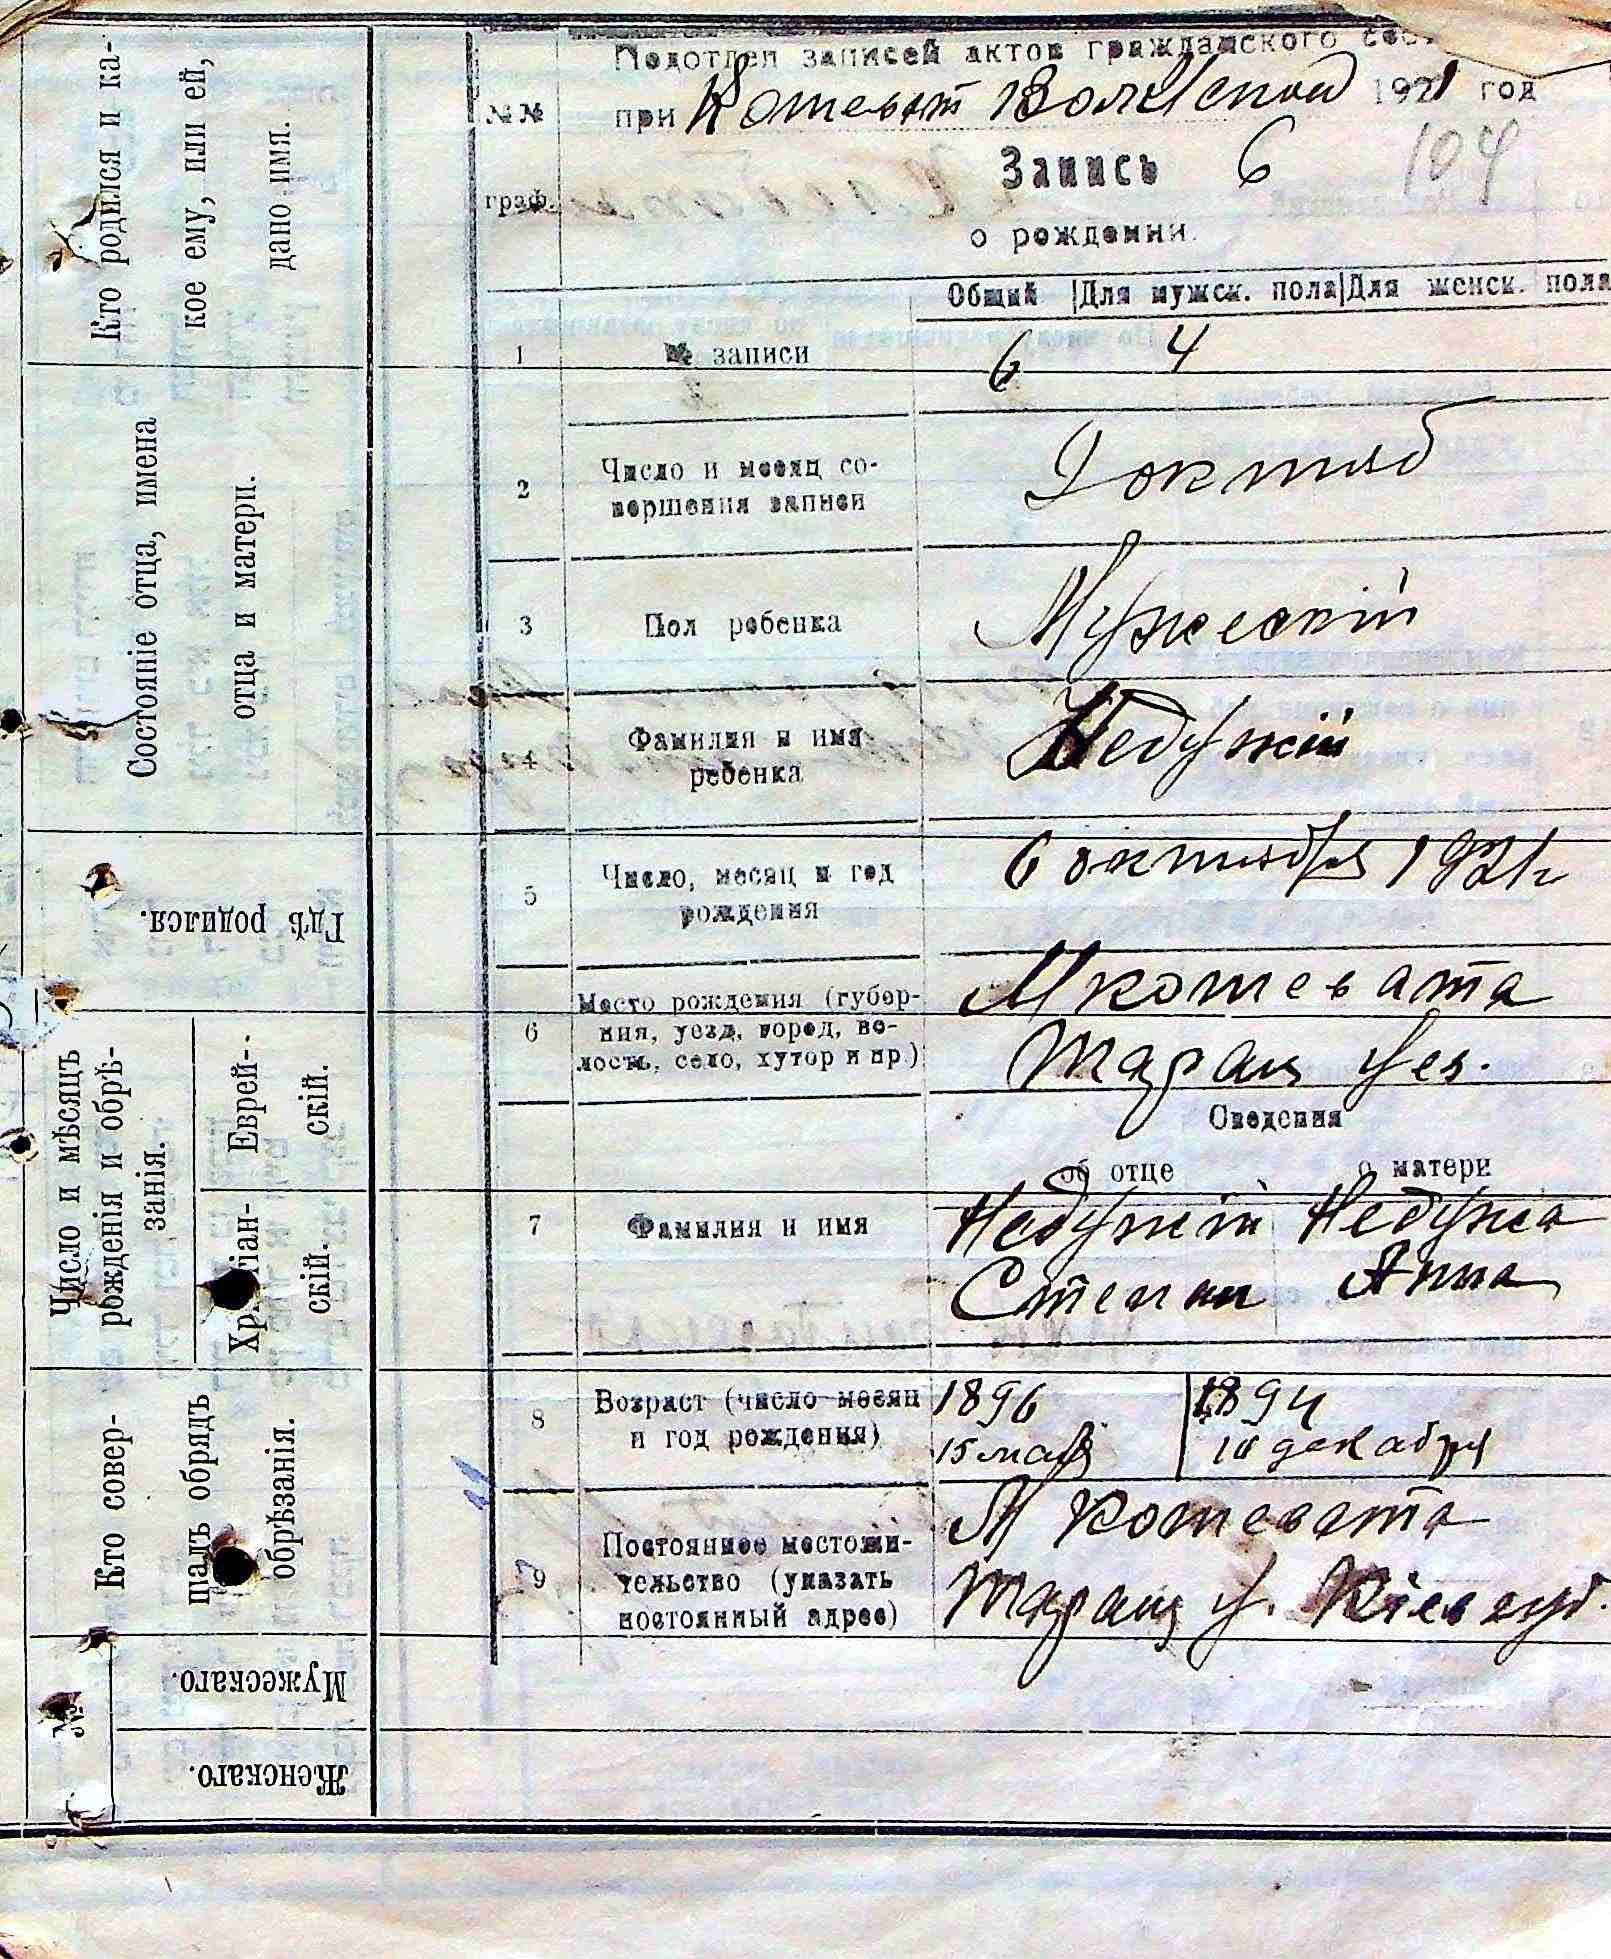 Кто родился и ка-
кое ему, или ей,
дано имя.
Состояніе отца, имена
отца и матери.
Гдѣ родился.
Число и мѣсяцъ
рожденія и обрѣ-
занія.
Еврей-
скій.
Христіан-
скій.
Кто совер-
шалъ обрядъ
обрѣзанія.
№
Мужескаго.
Женскаго.
Подотдел записей актов гражданского
№№ граф.
при Котеват Вол 1921 год
Запись 6
104
о рождении.
Общий Для мужск. пола Для женск. пола
1 № записи 6 4
2 Число и месяц со-
вершения записи
9 октяб
3 Пол ребенка Мужескій
4 Фамилия и имя
ребенка
Недужій
5 Число, месяц и год
рождения
6 октября 1921 г
6 Место рождения (губер-
ния, уезд, город, во-
лость, село, хутор и пр.)
М котевата
Таращ уез.
Сведения
об отце о матери
7 Фамилия и имя Недужій Недужа
Степан Анна
8 Возраст (число месяц
и год рождения)
1896 1894
15 мая 10 декабря
9 Постоянное местожи-
тельство (указать
постоянный адрес)
М Котевата
Таращ у. Кіев губ.